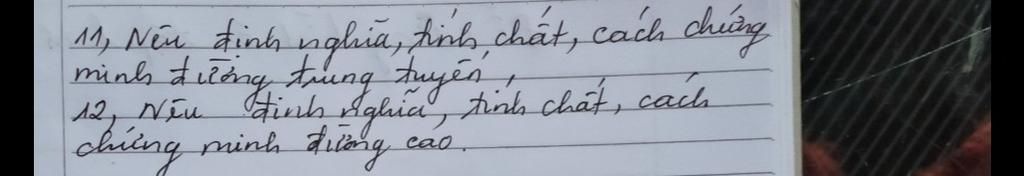 11, Nêu định nghĩa, tính chất, cách chứng
minh đường trung tuyến,
12, Nêu định nghĩa, tính chất, cách
chứng minh đường cao.